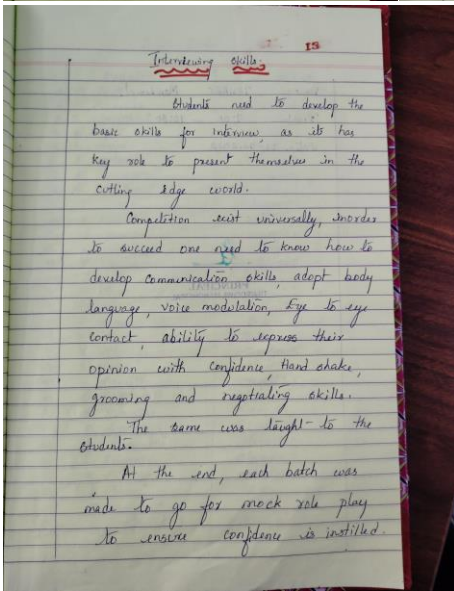 13
Interviewing Skills.
Students need to develop the
basic skills for interview, as its has
key role to present themselves in the
cutting edge world.
Competition exist universally, inorder
to succeed one need to know how to
develop communication skills, adopt body
language, voice modulation, Eye to eye
contact, ability to express their
opinion with confidence, Hand shake,
grooming and negotialing skills.
The same was taught to the
students.
At the end, each batch was
made to go for mock role play
to ensure confidence is instilled.